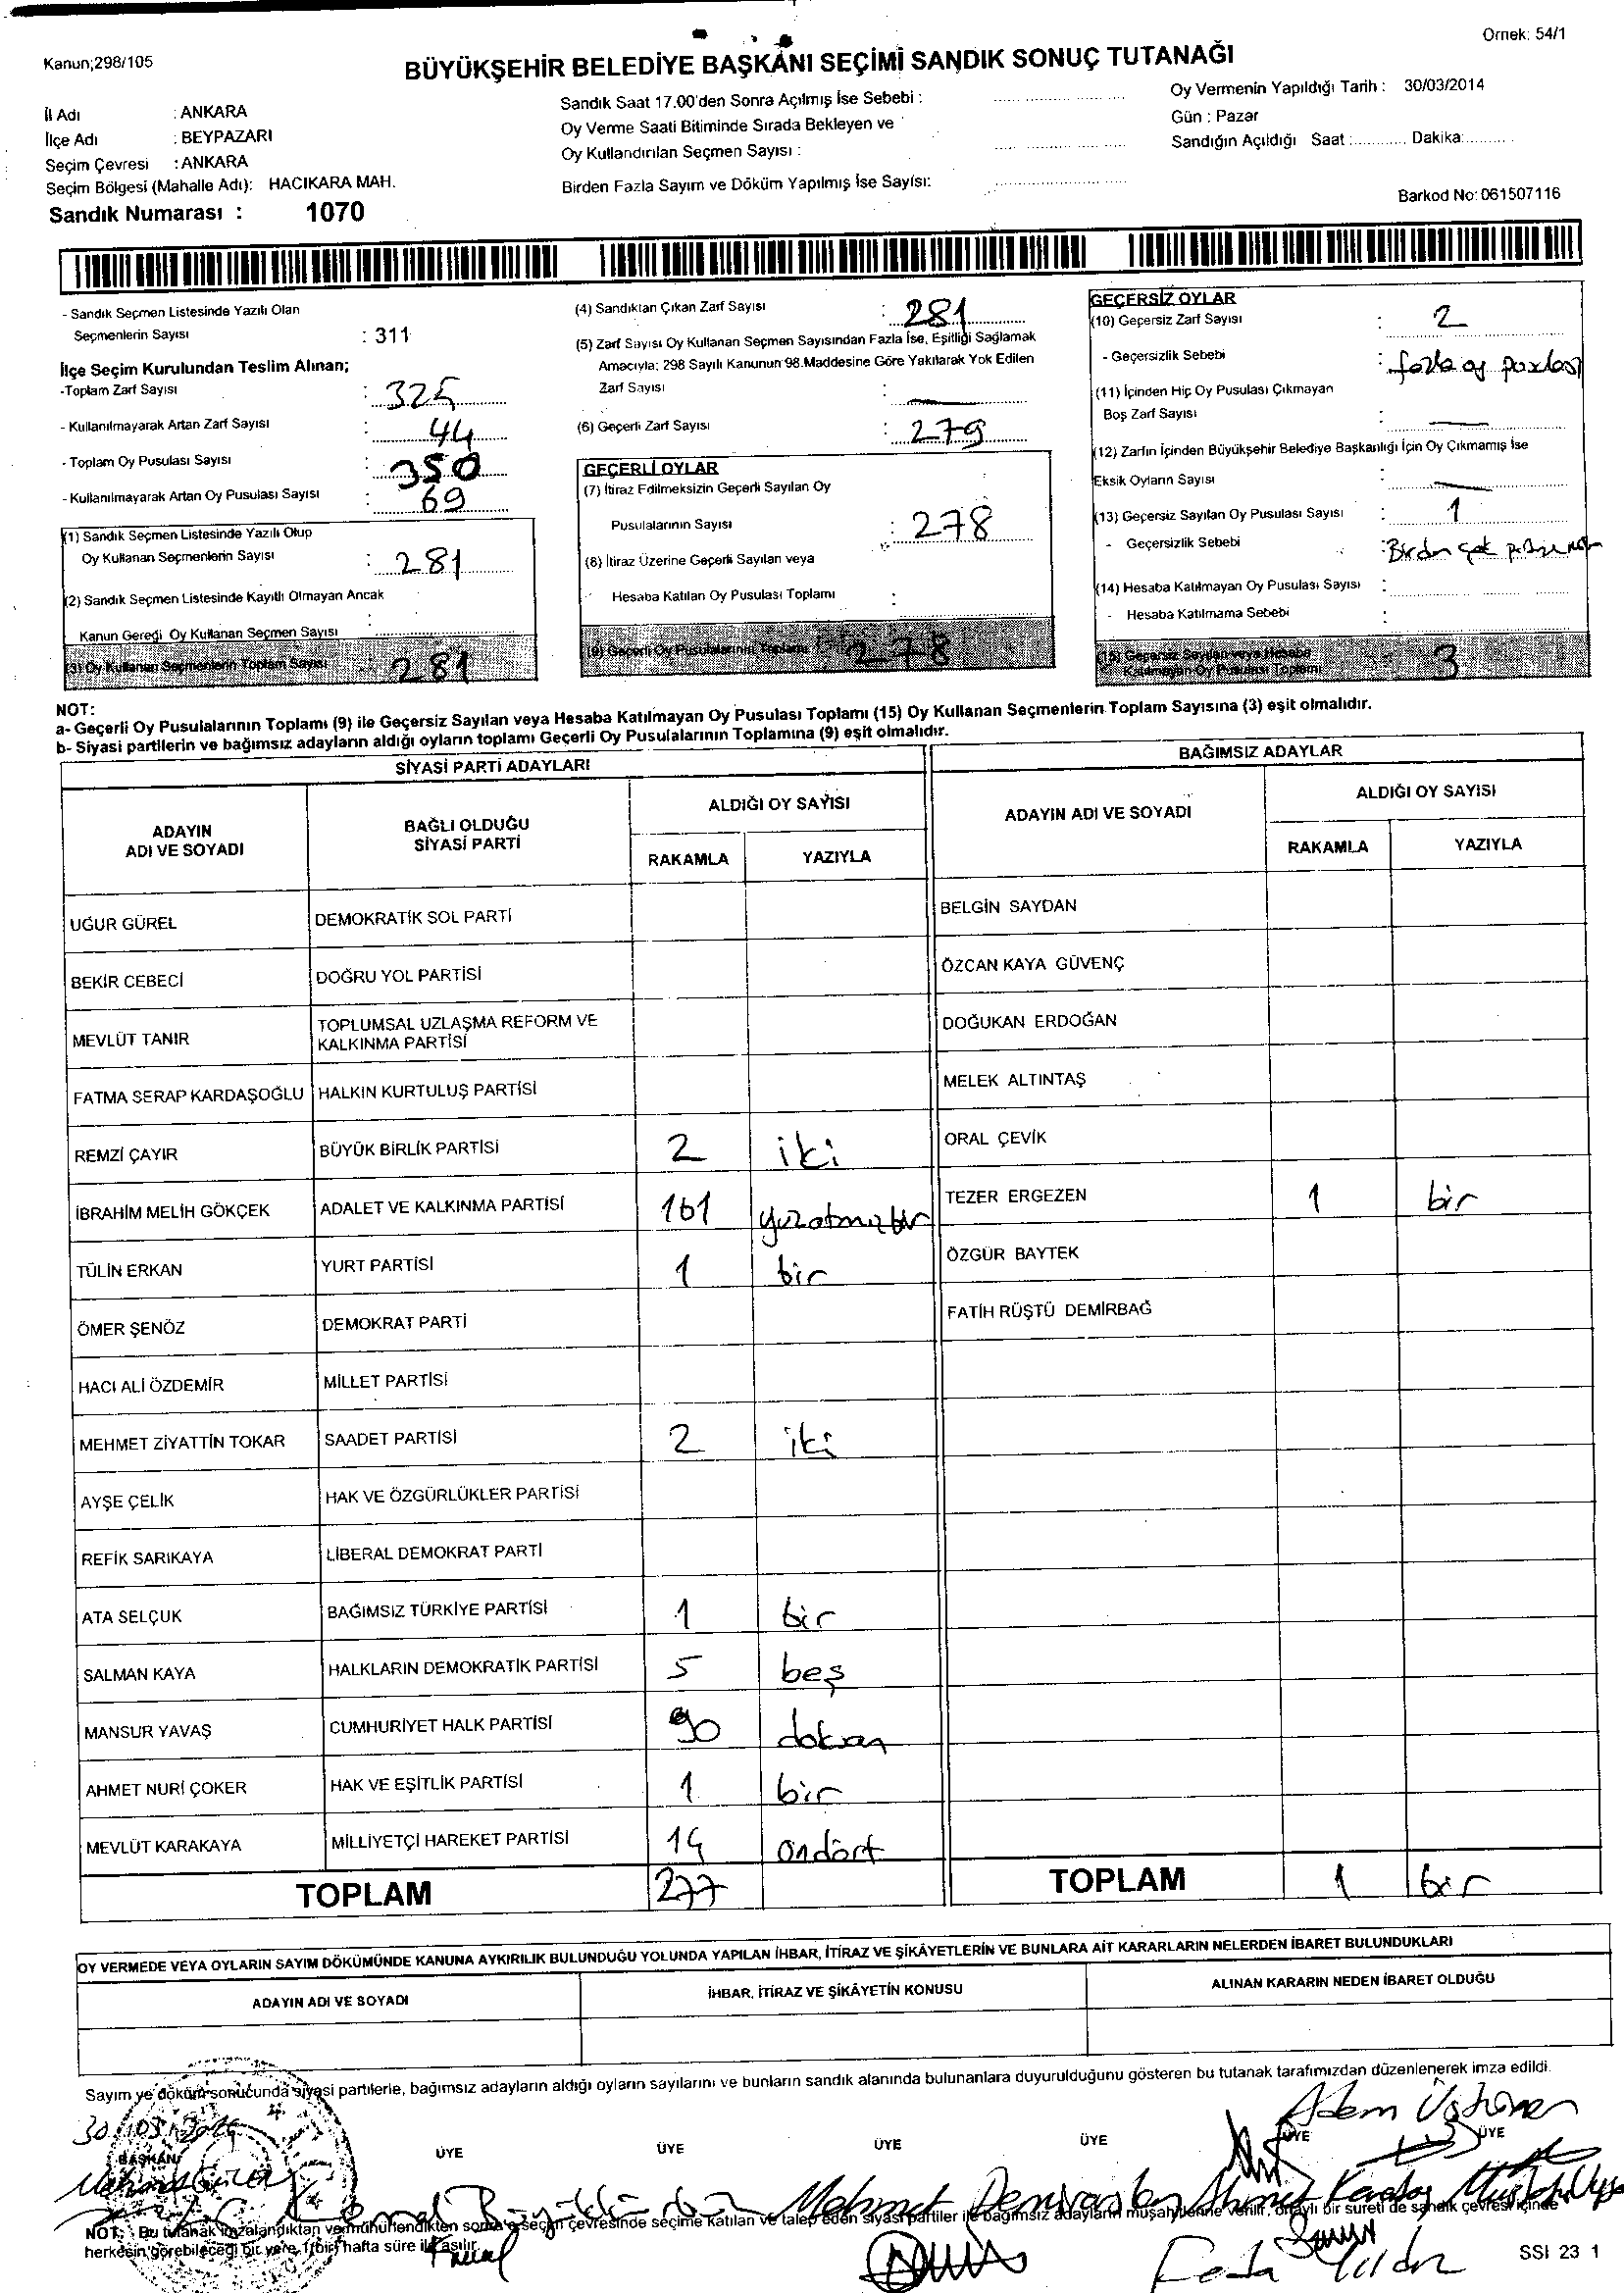 Örnek: 54/1
Kanun;298/105
BÜYÜKŞEHİR BELEDİYE BAŞKANI SEÇİMİ SANDIK SONUÇ TUTANAĞI
İl Adı : ANKARA
İlçe Adı : BEYPAZARI
Seçim Çevresi : ANKARA
Seçim Bölgesi (Mahalle Adı): HACIKARA MAH.
Sandık Numarası : 1070
Sandık Saat 17.00'den Sonra Açılmış İse Sebebi :
Oy Verme Saati Bitiminde Sırada Bekleyen ve
Oy Kullandırılan Seçmen Sayısı :
Birden Fazla Sayım ve Döküm Yapılmış İse Sayısı:
Oy Vermenin Yapıldığı Tarih : 30/03/2014
Gün : Pazar
Sandığın Açıldığı Saat :............ Dakika:..........
Barkod No: 061507116
- Sandık Seçmen Listesinde Yazılı Olan
Seçmenlerin Sayısı : 311
İlçe Seçim Kurulundan Teslim Alınan;
-Toplam Zarf Sayısı : 325
- Kullanılmayarak Artan Zarf Sayısı : 44
- Toplam Oy Pusulası Sayısı : 350
- Kullanılmayarak Artan Oy Pusulası Sayısı : 69
(1) Sandık Seçmen Listesinde Yazılı Olup
Oy Kullanan Seçmenlerin Sayısı : 281
(2) Sandık Seçmen Listesinde Kayıtlı Olmayan Ancak
Kanun Gereği Oy Kullanan Seçmen Sayısı
(3) Oy Kullanan Seçmenlerin Toplam Sayısı : 281
(4) Sandıktan Çıkan Zarf Sayısı : 281
(5) Zarf Sayısı Oy Kullanan Seçmen Sayısından Fazla İse, Eşitliği Sağlamak
Amacıyla; 298 Sayılı Kanunun 98.Maddesine Göre Yakılarak Yok Edilen
Zarf Sayısı : —
(6) Geçerli Zarf Sayısı : 279
GEÇERLİ OYLAR
(7) İtiraz Edilmeksizin Geçerli Sayılan Oy
Pusulalarının Sayısı : 278
(8) İtiraz Üzerine Geçerli Sayılan veya
Hesaba Katılan Oy Pusulası Toplamı :
(9) Geçerli Oy Pusulalarının Toplamı : 278
GEÇERSİZ OYLAR
(10) Geçersiz Zarf Sayısı : 2
- Geçersizlik Sebebi : fazla oy
(11) İçinden Hiç Oy Pusulası Çıkmayan
Boş Zarf Sayısı : —
(12) Zarfın İçinden Büyükşehir Belediye Başkanlığı İçin Oy Çıkmamış İse
Eksik Oyların Sayısı : —
(13) Geçersiz Sayılan Oy Pusulası Sayısı : 1
- Geçersizlik Sebebi : Birden çok
(14) Hesaba Katılmayan Oy Pusulası Sayısı :
- Hesaba Katılmama Sebebi :
(15) Geçersiz Sayılan veya Hesaba
Katılmayan Oy Pusulası Toplamı 3
NOT:
a- Geçerli Oy Pusulalarının Toplamı (9) ile Geçersiz Sayılan veya Hesaba Katılmayan Oy Pusulası Toplamı (15) Oy Kullanan Seçmenlerin Toplam Sayısına (3) eşit olmalıdır.
b- Siyasi partilerin ve bağımsız adayların aldığı oyların toplamı Geçerli Oy Pusulalarının Toplamına (9) eşit olmalıdır.
SİYASİ PARTİ ADAYLARI
ADAYIN ADI VE SOYADI BAĞLI OLDUĞU SİYASİ PARTİ ALDIĞI OY SAYISI
RAKAMLA YAZIYLA
UĞUR GÜREL DEMOKRATİK SOL PARTİ
BEKİR CEBECİ DOĞRU YOL PARTİSİ
MEVLÜT TANIR TOPLUMSAL UZLAŞMA REFORM VE KALKINMA PARTİSİ
FATMA SERAP KARDAŞOĞLU HALKIN KURTULUŞ PARTİSİ
REMZİ ÇAYIR BÜYÜK BİRLİK PARTİSİ 2 iki
İBRAHİM MELİH GÖKÇEK ADALET VE KALKINMA PARTİSİ 161 yüzatmışbir
TÜLİN ERKAN YURT PARTİSİ 1 bir
ÖMER ŞENÖZ DEMOKRAT PARTİ
HACI ALİ ÖZDEMİR MİLLET PARTİSİ
MEHMET ZİYATTİN TOKAR SAADET PARTİSİ 2 iki
AYŞE ÇELİK HAK VE ÖZGÜRLÜKLER PARTİSİ
REFİK SARIKAYA LİBERAL DEMOKRAT PARTİ
ATA SELÇUK BAĞIMSIZ TÜRKİYE PARTİSİ 1 bir
SALMAN KAYA HALKLARIN DEMOKRATİK PARTİSİ 5 beş
MANSUR YAVAŞ CUMHURİYET HALK PARTİSİ 90 doksan
AHMET NURİ ÇOKER HAK VE EŞİTLİK PARTİSİ 1 bir
MEVLÜT KARAKAYA MİLLİYETÇİ HAREKET PARTİSİ 14 ondört
TOPLAM 277
BAĞIMSIZ ADAYLAR
ADAYIN ADI VE SOYADI ALDIĞI OY SAYISI
RAKAMLA YAZIYLA
BELGİN SAYDAN
ÖZCAN KAYA GÜVENÇ
DOĞUKAN ERDOĞAN
MELEK ALTINTAŞ
ORAL ÇEVİK
TEZER ERGEZEN 1 bir
ÖZGÜR BAYTEK
FATİH RÜŞTÜ DEMİRBAĞ
TOPLAM 1 bir
OY VERMEDE VEYA OYLARIN SAYIM DÖKÜMÜNDE KANUNA AYKIRILIK BULUNDUĞU YOLUNDA YAPILAN İHBAR, İTİRAZ VE ŞİKÂYETLERİN VE BUNLARA AİT KARARLARIN NELERDEN İBARET BULUNDUKLARI
ADAYIN ADI VE SOYADI İHBAR, İTİRAZ VE ŞİKÂYETİN KONUSU ALINAN KARARIN NEDEN İBARET OLDUĞU
Sayım ve döküm sonucunda siyasi partilerle, bağımsız adayların aldığı oyların sayılarını ve bunların sandık alanında bulunanlara duyurulduğunu gösteren bu tutanak tarafımızdan düzenlenerek imza edildi.
BAŞKAN ÜYE ÜYE ÜYE ÜYE ÜYE ÜYE
Adem
Mehmet Ahmet
NOT: Bu tutanak imzalandıktan ve mühürlendikten sonra o seçim çevresinde seçime katılan ve talep eden siyasi partiler ile bağımsız adayların müşahitlerine verilir, onaylı bir sureti de sandık çevresi içinde
herkesin görebileceği bir yere 1(bir) hafta süre ile asılır.
SSI 23 1